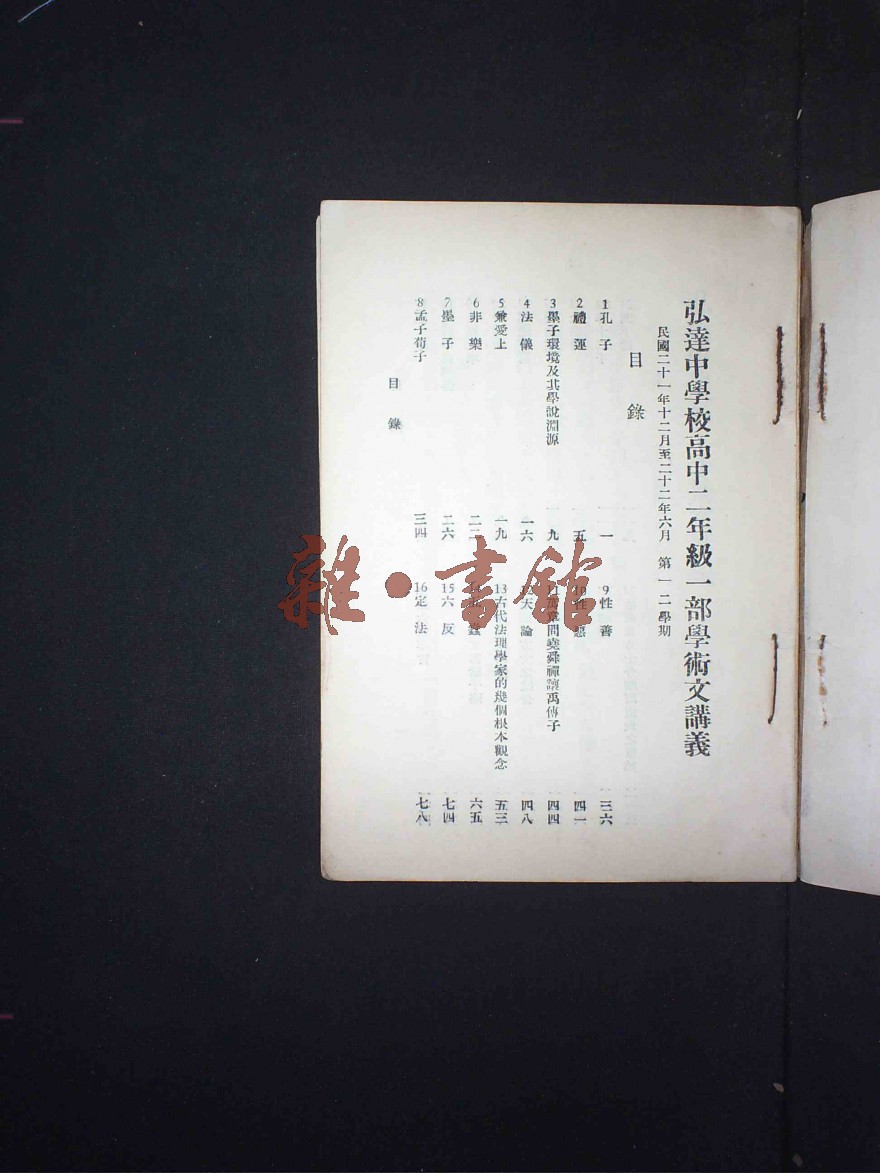 弘達中學校高中二年級一部學術文講義
民國二十一年十二月至二十二年六月　第一二學期
目錄
1孔子　一
2禮運　五
3墨子環境及其學說淵源　九
4法儀　一六
5兼愛上　一九
6非樂　二二
7墨子　二六
8孟子荀子　三四
9性善　三六
10性惡　四一
11萬章問堯舜禪讓禹傳子　四四
天論　四八
13古代法理學家的幾個根本觀念　五三
蠹　六五
15六反　七四
16定法　七八
目錄
雜·書館